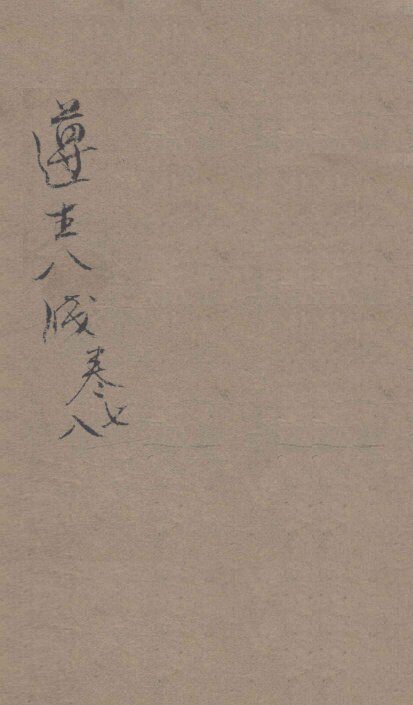 遵生八牋卷七八